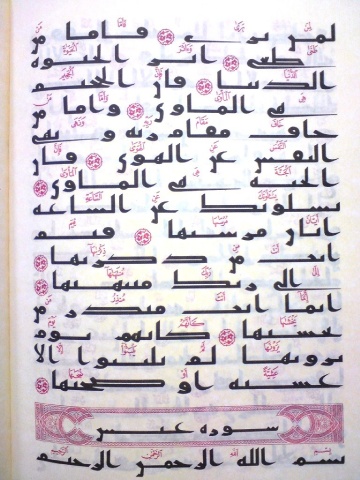 لمن يرى ۝ فاما من
طغى ۝ واثر الحيوه
الدنيا ۝ فان الجحيم
هى الماوى ۝ واما من
خاف مقام ربه ونهى
النفس عن الهوى ۝ فان
الجنه هى الماوى ۝
يسلونك عن الساعه
ايان مرسيها ۝ فيم
انت من ذكريها ۝
الى ربك منتهيها ۝
انما انت منذر من
يخشيها ۝ كانهم يوم
يرونها لم يلبثوا الا
عشيه او ضحيها ۝
سوره عبس
بسم الله الرحمن الرحيم